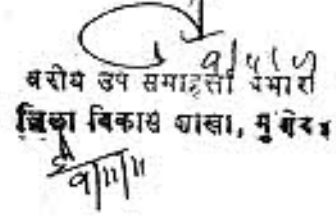 वरीय उप समाहर्त्ता प्रभारी
जिला विकास शाखा, मुंगेर।
9/11/11